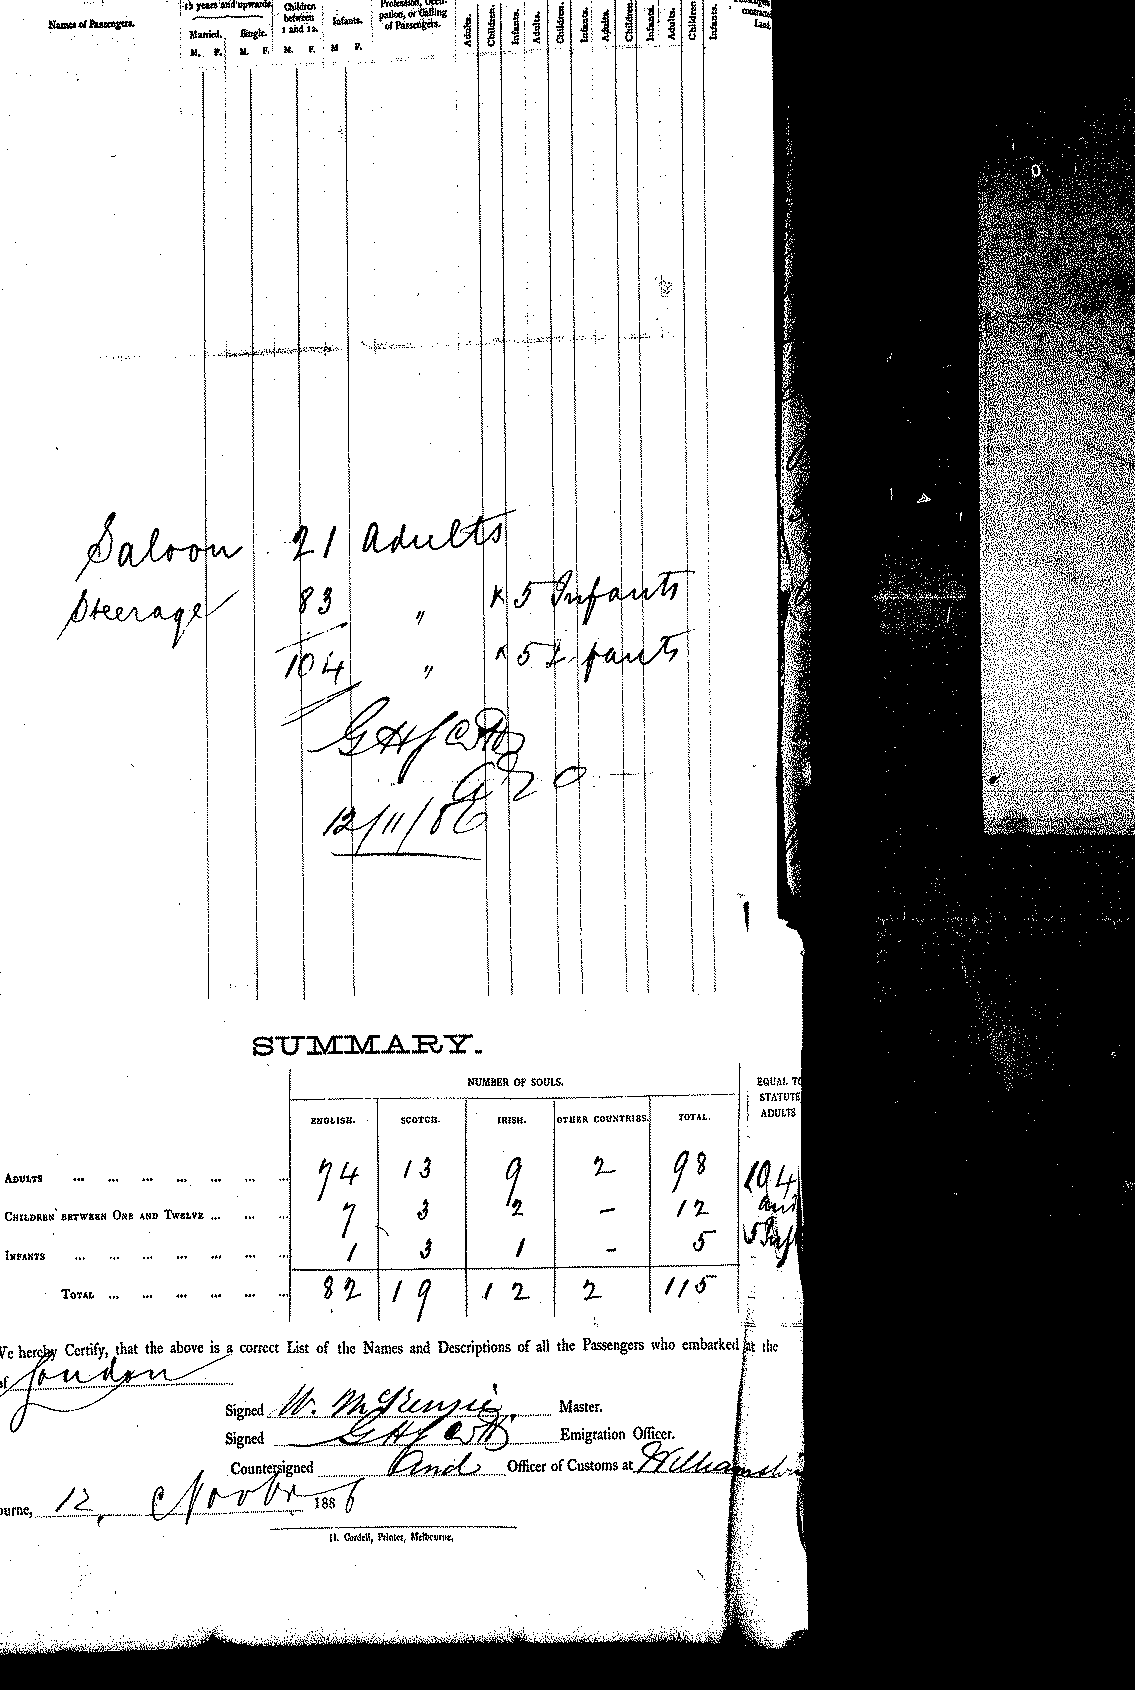 Names of Passengers.
12 years and upwards.
Married. Single.
Children between 1 and 12.
Infants.
Profession, Occupation, or Calling of Passengers.
M. F. M. F. M. F. M F.
Adults. Children. Infants. Adults. Children. Infants. Adults. Children. Infants. Adults. Children. Infants.
Saloon 21 Adults
Steerage 83 " & 5 Infants
104 " & 5 Infants
12/11/86
SUMMARY.
NUMBER OF SOULS.
EQUAL TO STATUTE ADULTS
ENGLISH. SCOTCH. IRISH. OTHER COUNTRIES. TOTAL.
ADULTS ... ... ... ... ... ... ... 74 13 9 2 98 104
CHILDREN BETWEEN ONE AND TWELVE ... ... ... 7 3 2 – 12 and
INFANTS ... ... ... ... ... ... ... 1 3 1 – 5 5 Inf
TOTAL ... ... ... ... ... ... 82 19 12 2 115
We hereby Certify, that the above is a correct List of the Names and Descriptions of all the Passengers who embarked at the
of London
Signed W. McKenzie. Master.
Signed Emigration Officer.
Countersigned Officer of Customs at
ourne, 12, Novbr 1886
H. Cordell, Printer, Melbourne.